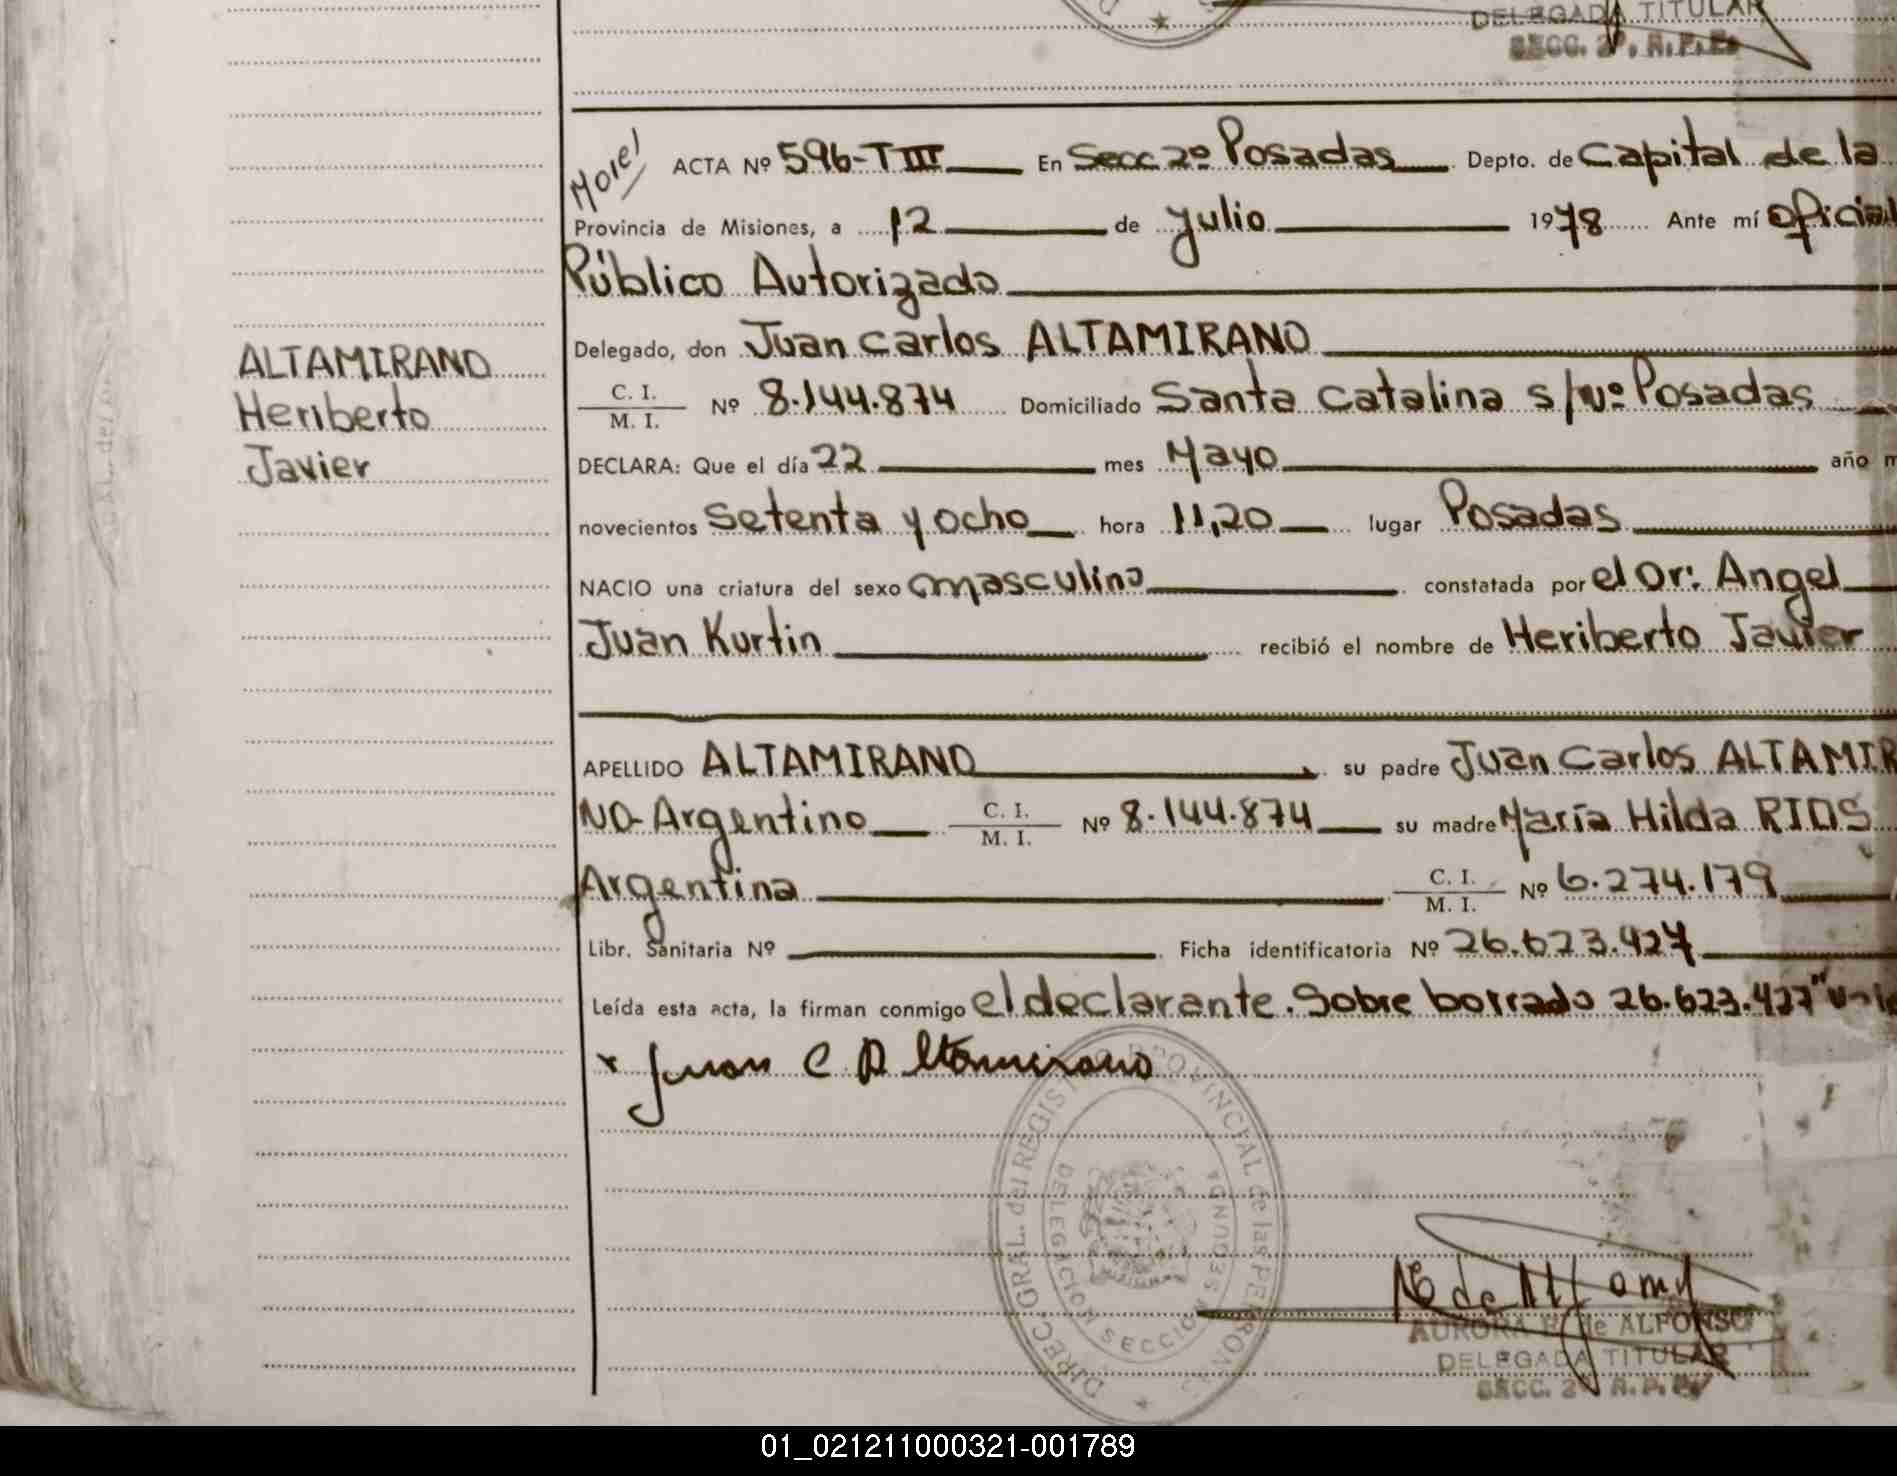 DELEGADA TITULAR
SECC. 2ª. R.P.P.
ACTA Nº 596-T III En Secc 2º Posadas Depto. de Capital de la
Provincia de Misiones, a 12 de Julio 1978 Ante mí Oficial
Público Autorizado
Delegado, don Juan Carlos ALTAMIRANO
ALTAMIRANO
Heriberto
Javier
C. I.
M. I.
Nº 8.144.874 Domiciliado Santa Catalina s/nº Posadas
DECLARA: Que el día 22 mes Mayo año m
novecientos setenta y ocho hora 11,20 lugar Posadas
NACIO una criatura del sexo masculino constatada por el Dr: Angel
Juan Kurtin recibió el nombre de Heriberto Javier
APELLIDO ALTAMIRANO su padre Juan Carlos ALTAMIR
NO-Argentino C. I. M. I. Nº 8.144.874 su madre María Hilda RIOS
Argentina C. I. M. I. Nº 6.274.179
Libr. Sanitaria Nº Ficha identificatoria Nº 26.623.427
Leída esta acta, la firman conmigo el declarante. Sobre borrado 26.623.427" Vale
x Juan C Altamirano
DIREC. GRAL. del REGISTRO PROVINCIAL de las PERSONAS
DELEGACION SECCION SEGUNDA
AURORA de ALFONSO
DELEGADA TITULAR
SECC. 2ª R.P.P.
01_021211000321-001789